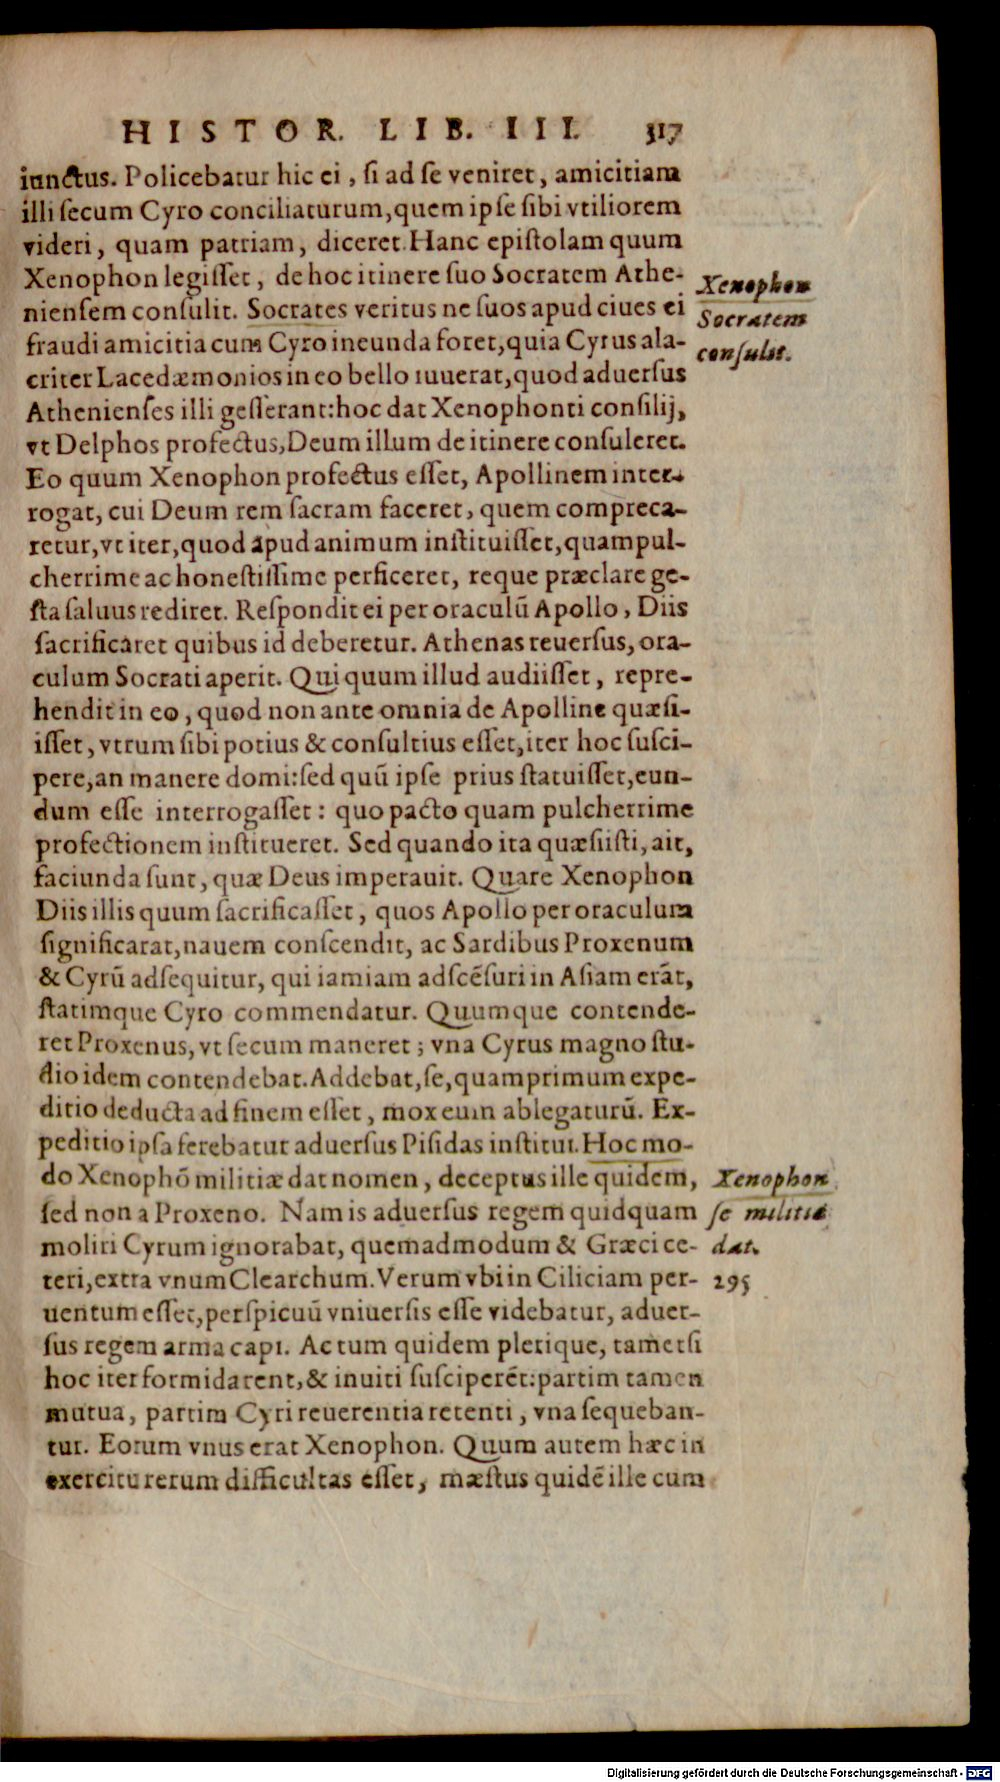 HISTOR. LIB. III. 317
iunctus. Policebatur hic ei, ſi ad ſe veniret, amicitiam
illi ſecum Cyro conciliaturum, quem ipſe ſibi vtiliorem
videri, quam patriam, diceret. Hanc epiſtolam quum
Xenophon legiſſet, de hoc itinere ſuo Socratem Athe-
nienſem conſulit. Socrates veritus ne ſuos apud ciues ei
fraudi amicitia cum Cyro ineunda foret, quia Cyrus ala-
criter Lacedæmonios in eo bello iuuerat, quod aduerſus
Athenienſes illi geſſerant: hoc dat Xenophonti conſilij,
vt Delphos profectus, Deum illum de itinere conſuleret.
Eo quum Xenophon profectus eſſet, Apollinem inter-
rogat, cui Deum rem ſacram faceret, quem compreca-
retur, vt iter, quod apud animum inſtituiſſet, quam pul-
cherrime ac honeſtiſſime perficeret, reque præclare ge-
ſta ſaluus rediret. Reſpondit ei per oraculū Apollo, Diis
ſacrificaret quibus id deberetur. Athenas reuerſus, ora-
culum Socrati aperit. Qui quum illud audiiſſet, repre-
hendit in eo, quod non ante omnia de Apolline quæſi-
iſſet, vtrum ſibi potius & conſultius eſſet, iter hoc ſuſci-
pere, an manere domi: ſed quū ipſe prius ſtatuiſſet, eun-
dum eſſe interrogaſſet: quo pacto quam pulcherrime
profectionem inſtitueret. Sed quando ita quæſiiſti, ait,
faciunda ſunt, quæ Deus imperauit. Quare Xenophon
Diis illis quum ſacrificaſſet, quos Apollo per oraculum
ſignificarat, nauem conſcendit, ac Sardibus Proxenum
& Cyrū adſequitur, qui iamiam adſcēſuri in Aſiam erāt,
ſtatimque Cyro commendatur. Quumque contende-
ret Proxenus, vt ſecum maneret; vna Cyrus magno ſtu-
dio idem contendebat. Addebat, ſe, quamprimum expe-
ditio deducta ad finem eſſet, mox eum ablegaturū. Ex-
peditio ipſa ferebatur aduerſus Piſidas inſtitui. Hoc mo-
do Xenophō militiæ dat nomen, deceptus ille quidem,
ſed non a Proxeno. Nam is aduerſus regem quidquam
moliri Cyrum ignorabat, quemadmodum & Græci ce-
teri, extra vnum Clearchum. Verum vbi in Ciliciam per-
uentum eſſet, perſpicuū vniuerſis eſſe videbatur, aduer-
ſus regem arma capi. Ac tum quidem plerique, tametſi
hoc iter formidarent, & inuiti ſuſciperēt: partim tamen
mutua, partim Cyri reuerentia retenti, vna ſequeban-
tur. Eorum vnus erat Xenophon. Quum autem hæc in
exercitu rerum difficultas eſſet, mæſtus quidē ille cum
Xenophon
Socratem
conſulit.
Xenophon
ſe militiæ
dat.
295
Digitalisierung gefördert durch die Deutsche Forschungsgemeinschaft - DFG